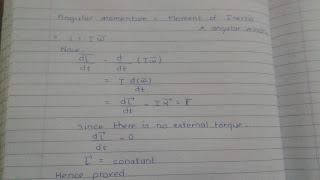 Angular momentum = Moment of Inertia
x angular velocity
= L = I ω
Now
dL/dt = d/dt (I ω)
= I d(ω)/dt
= dL/dt = I α = F
Since there is no external torque.
dL/dt = 0
L = constant
Hence proved